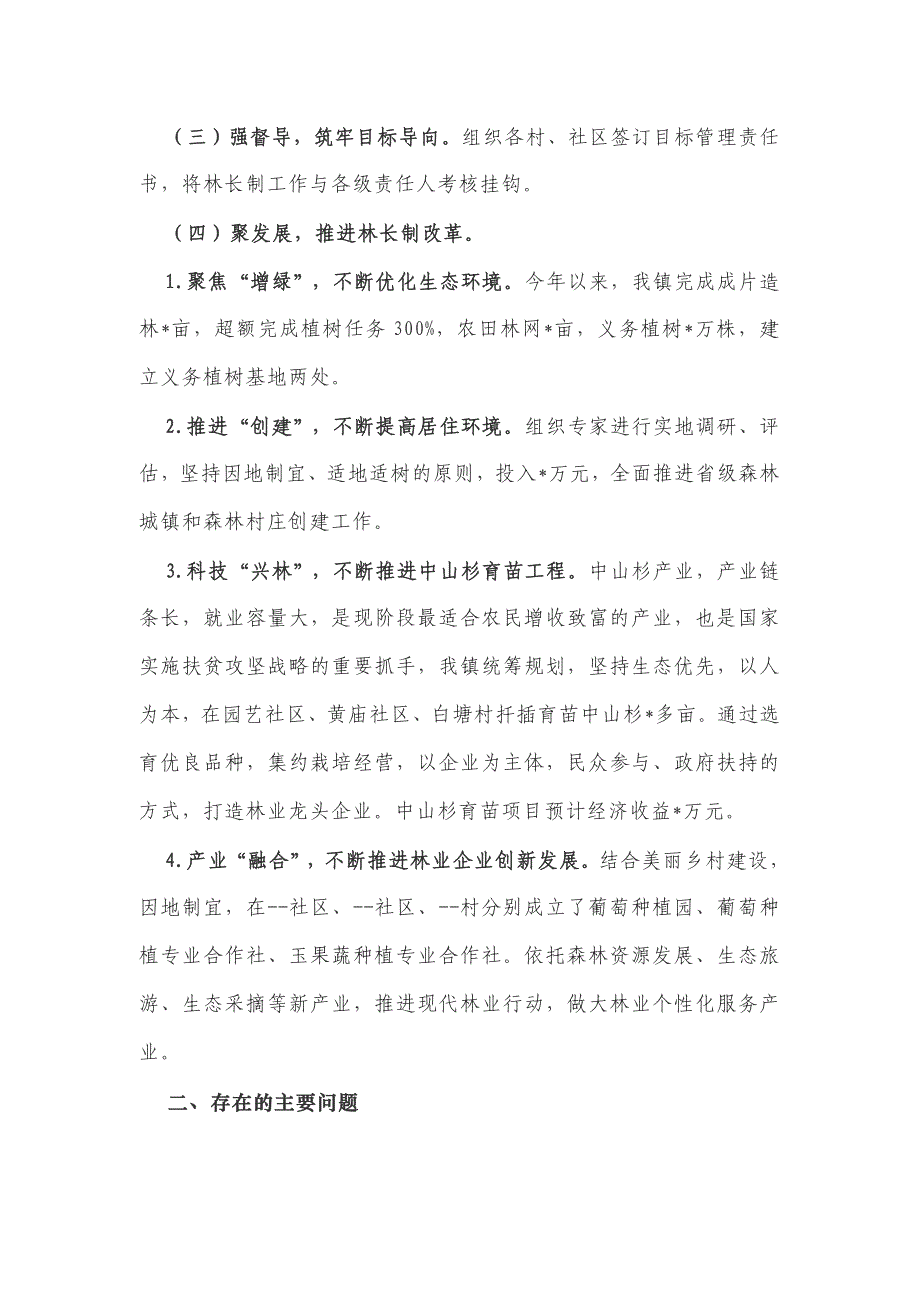 （三）强督导，筑牢目标导向。组织各村、社区签订目标管理责任
书，将林长制工作与各级责任人考核挂钩。
（四）聚发展，推进林长制改革。
1.聚焦“增绿”，不断优化生态环境。今年以来，我镇完成成片造
林*亩，超额完成植树任务 300%，农田林网*亩，义务植树*万株，建
立义务植树基地两处。
2.推进“创建”，不断提高居住环境。组织专家进行实地调研、评
估，坚持因地制宜、适地适树的原则，投入*万元，全面推进省级森林
城镇和森林村庄创建工作。
3.科技“兴林”，不断推进中山杉育苗工程。中山杉产业，产业链
条长，就业容量大，是现阶段最适合农民增收致富的产业，也是国家
实施扶贫攻坚战略的重要抓手，我镇统筹规划，坚持生态优先，以人
为本，在园艺社区、黄庙社区、白塘村扦插育苗中山杉*多亩。通过选
育优良品种，集约栽培经营，以企业为主体，民众参与、政府扶持的
方式，打造林业龙头企业。中山杉育苗项目预计经济收益*万元。
4.产业“融合”，不断推进林业企业创新发展。结合美丽乡村建设，
因地制宜，在--社区、--社区、--村分别成立了葡萄种植园、葡萄种
植专业合作社、玉果蔬种植专业合作社。依托森林资源发展、生态旅
游、生态采摘等新产业，推进现代林业行动，做大林业个性化服务产
业。
二、存在的主要问题